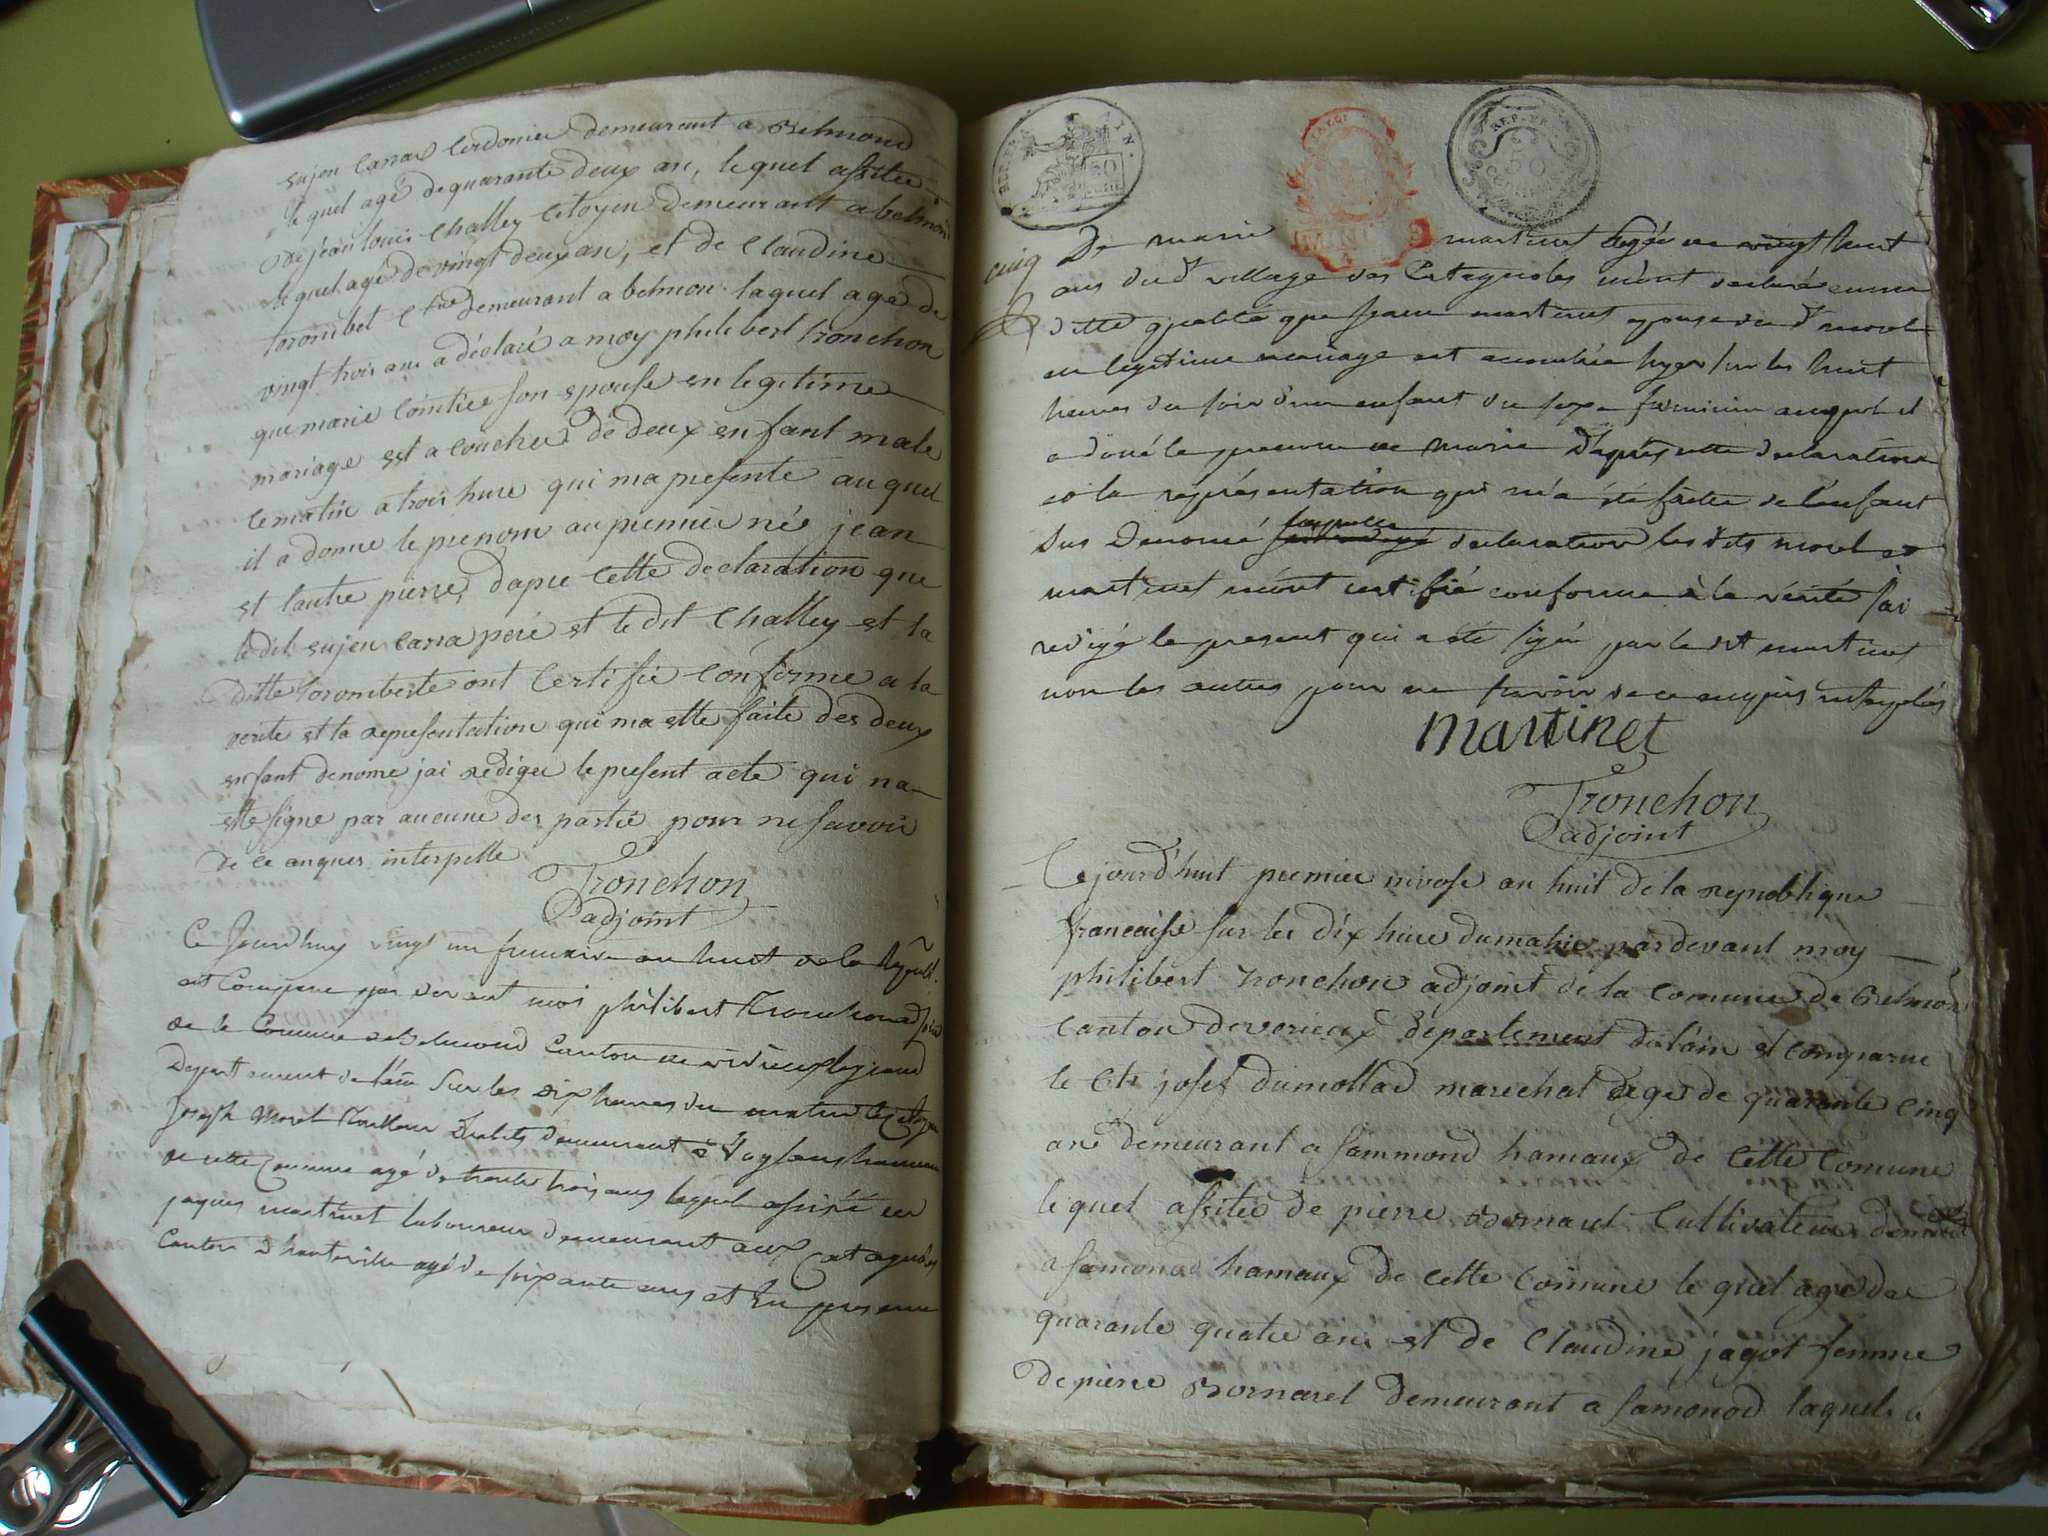 sujen Carras Cordonier demeurant a Belmond
le quel agé de quarante deux an, le quel assitée
de jean louis Challey Citoyen demeurant a belmon
le quel agé de vingt deux an, et de Claudine
trombet demeurant a belmon laquel agé de
vingt trois ans a déclaré a moy philibert tronchon
que marie son epouse en legitime
mariage est a coucher de deux enfant male
le matin a trois hure qui ma presenté au quel
il a donne le prenom au premier né jean
et lautre pierre, dapre cette declaration que
le dit sujen Carra pere et le dit Challey et la
ditte trombette ont certifié conforme a la
verite et la representation qui ma ette faite des deux
enfant denome jai rediger le present acte qui na
ette signe par aucune des partie pour ne savoir
de ce enques interpelle
Tronchon
adjoint
Ce jourdhuy vingt un frimaire an huit de la Republ.
est Comparu par devant moi philibert Tronchon adjoint
de la Commune de Belmond Canton de virieux le grand
Departement de l'ain sur les dix heures du matin le Citoyen
Joseph Morel Tailleur D'habits demeurant à Vogland hameau
de cette Commune agé de trente trois ans lequel assisté de
jaques martinet laboureur demeurant aux Catagnoles
Canton D'hauteville agé de soixante ans et En presence
REP. FRA
50
REP. FRA
50
cinq
De marie martinet agée de vingt huit
ans du dt village des Catagnoles m'ont declaré en une
ditte qualité que martinet epouse du dt morel
en legitime mariage est acouchée hyer sur les huit
heures du soir d'un enfant du sexe feminin auquel il
a doné le prenom de marie D'après cette declaration
et la représentation qui m'a été faitte de l'enfant
sus Denomé laquelle declaration les dits morel et
martinet m'ont certifié conforme à la vérité j'ai
redigé le present qui a été signé par le dit martinet
non les autres pour ne savoir de ce enquis interpelés
Martinet
Tronchon
adjoint
Ce jourd'huit premier nivose an huit de la republique
francaise sur les dix hure du matin par devant moy
philibert tronchon adjoint de la comune de Belmon
canton de verieux departement de lain est comparue
le Ctn josef dumollad marechal agé de quarante cinq
ans demeurant a sammond hamaux de cette comune
le quel assitée de pierre Bornarel Cultivateur demeurt
a samonod hamaux de cette comune le quel agé de
quarante quatre an. et de Claudine jagot femme
de pierre Bornarel demeurant a samonod laquel a